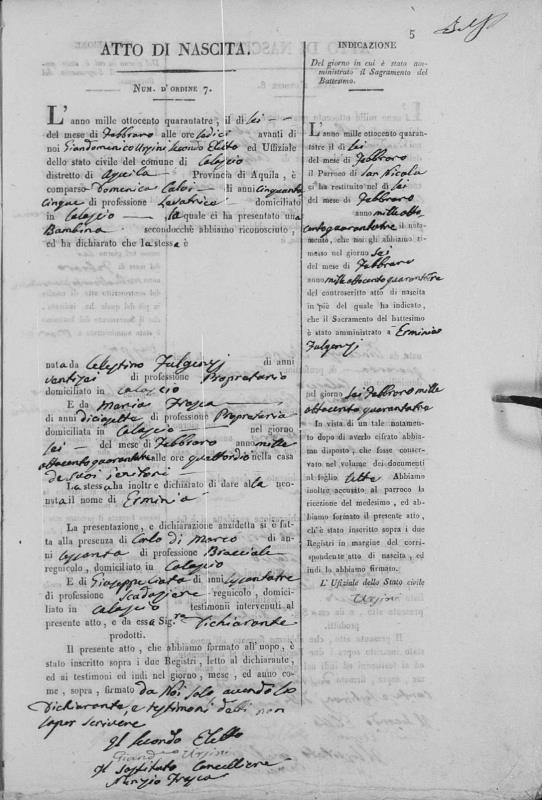 5
ATTO DI NASCITA.
NUM. D'ORDINE 7.
L'anno mille ottocento quarantatre, il dì sei
del mese di Febbraro alle ore sedici avanti di
noi Giandomenico Ursini Secondo Eletto ed Uffiziale
dello stato civile del comune di Calascio
distretto di Aquila Provincia di Aquila, è
comparsa Domenica di anni cinquanta
cinque di professione Levatrice domiciliata
in Calascio la quale ci ha presentato una
Bambina secondocchè abbiamo riconosciuto,
ed ha dichiarato che la stessa è
nata da Celestino Fulgenzj di anni
ventisei di professione Proprietario
domiciliato in Calascio
E da Maria Frasca
di anni diciasette di professione Proprietaria
domiciliata in Calascio nel giorno
sei del mese di Febbraro anno mille
ottocento quarantatre alle ore quattordici nella casa
de suoi genitori
La stessa ha inoltre dichiarato di dare alla neo-
nata il nome di Erminia
La presentazione, e dichiarazione anzidetta si è fat-
ta alla presenza di Carlo di Marco di an-
ni sessanta di professione Bracciale
regnicolo, domiciliato in Calascio
E di Giuseppe di anni sessantatre
di professione regnicolo, domici-
liato in Calascio testimonii intervenuti al
presente atto, e da essa Sig.ra Dichiarante
prodotti.
Il presente atto, che abbiamo formato all'uopo, è
stato inscritto sopra i due Registri, letto al dichiarante,
ed ai testimoni ed indi nel giorno, mese, ed anno co-
me, sopra, firmato da Noi solo avendo la
Dichiarante, e testimoni detti non
saper scrivere
Il Secondo Eletto
Ursini
Il Sostituto Cancelliere
Nunzio Frasca
INDICAZIONE
Del giorno in cui è stato am-
ministrato il Sagramento del
Battesimo.
L'anno mille ottocento quaran-
tatre il dì sei
del mese di Febbraro
il Parroco di San Nicola
ci ha restituito nel dì sei
del mese di Febbraro
anno mille otto
cento quarantatre il nota-
mento, che noi gli abbiamo ri-
messo nel giorno sei
del mese di Febbraro
anno mille ottocento quarantatre
del controscritto atto di nascita
in piè del quale ha indicato,
che il Sacramento del battesimo
è stato amministrato a Erminia
Fulgenzj
nel giorno sei Febbraro mille
ottocento quarantatre
In vista di un tale notamen-
to dopo di averlo cifrato abbia-
mo disposto, che fosse conser-
vato nel volume dei documenti
al foglio sette Abbiamo
inoltre accusato al parroco la
ricezione del medesimo, ed ab-
biamo formato il presente atto,
ch'è stato inscritto sopra i due
Registri in margine del corri-
spondente atto di nascita, ed
indi lo abbiamo firmato.
L' Ufiziale dello Stato civile
Ursini